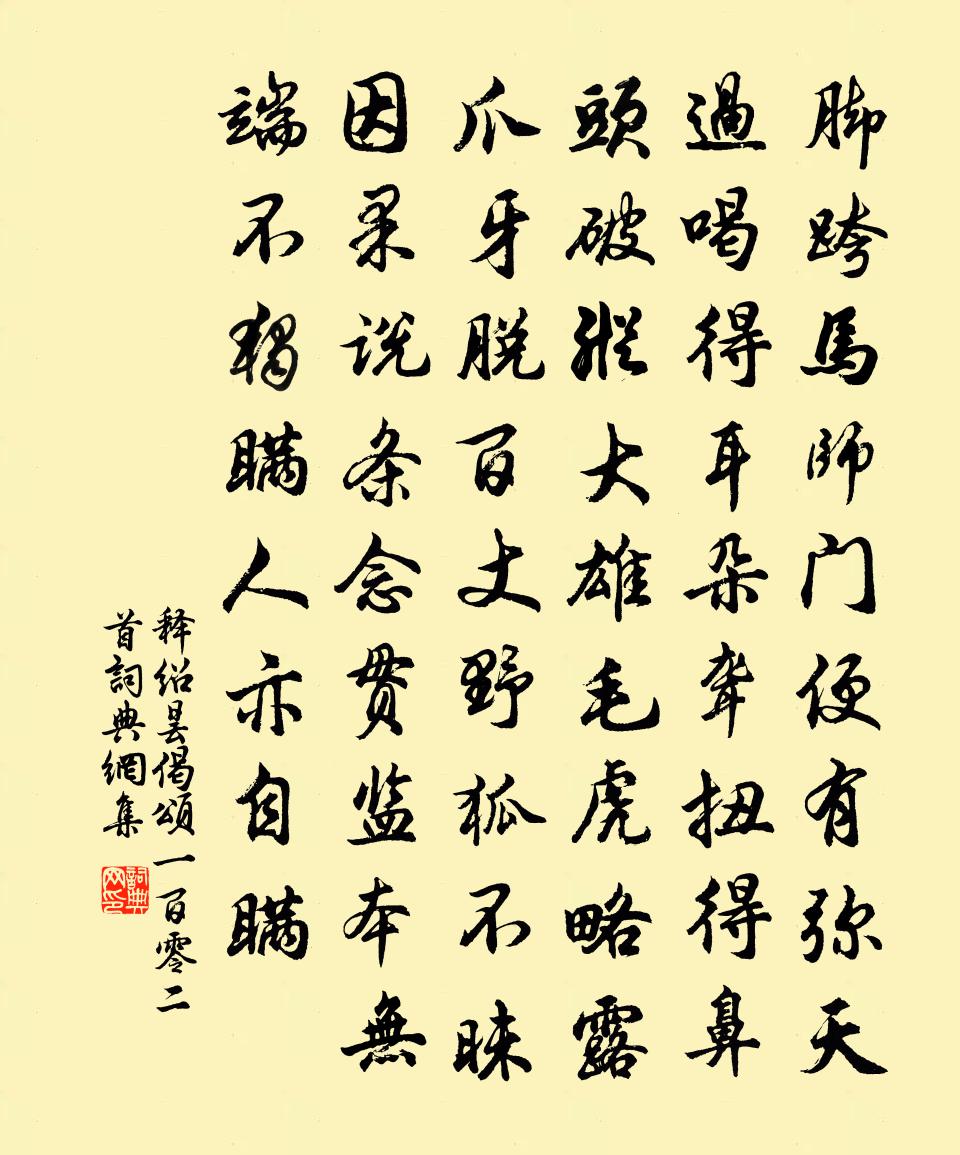 脚跨馬師门便有弥天
過喝得耳朵聋扭得鼻
頭破猣大雄毛虎略露
爪牙脱百丈野狐不昧
因果说条念贯监本無
端不独瞒人亦自瞒
释绍昙偈頌一百零二
首詞典網集
詞典网印